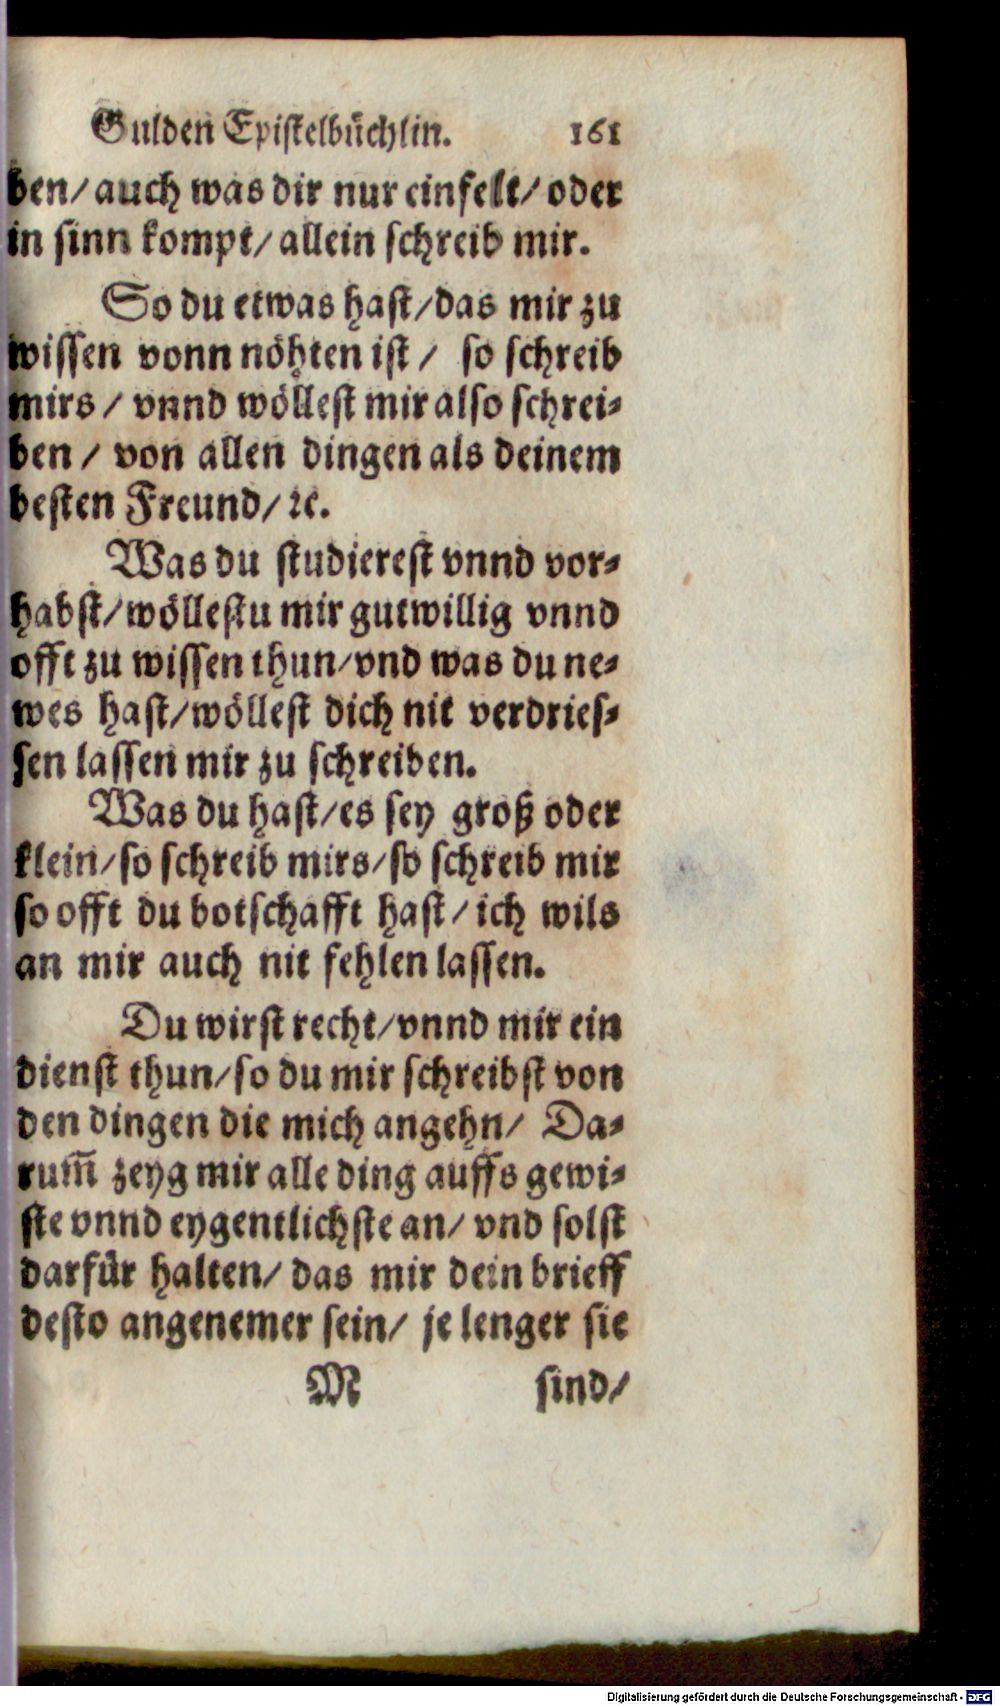 Gulden Epistelbüchlin. 161
ben/ auch was dir nur einfelt/ oder
in sinn kompt/ allein schreib mir.
So du etwas hast/das mir zu
wissen vonn nöhten ist / so schreib
mirs / vnnd wöllest mir also schrei⸗
ben / von allen dingen als deinem
besten Freund/ ꝛc.
Was du studierest vnnd vor⸗
habst/wöllestu mir gutwillig vnnd
offt zu wissen thun/vnd was du ne⸗
wes hast/wöllest dich nit verdries⸗
sen lassen mir zu schreiben.
Was du hast/es sey groß oder
klein/so schreib mirs/so schreib mir
so offt du botschafft hast/ ich wils
an mir auch nit fehlen lassen.
Du wirst recht/vnnd mir ein
dienst thun/so du mir schreibst von
den dingen die mich angehn/ Da⸗
rum̃ zeyg mir alle ding auffs gewi⸗
ste vnnd eygentlichste an/ vnd solst
darfür halten/ das mir dein brieff
desto angenemer sein/ je lenger sie
M sind/
Digitalisierung gefördert durch die Deutsche Forschungsgemeinschaft - DFG